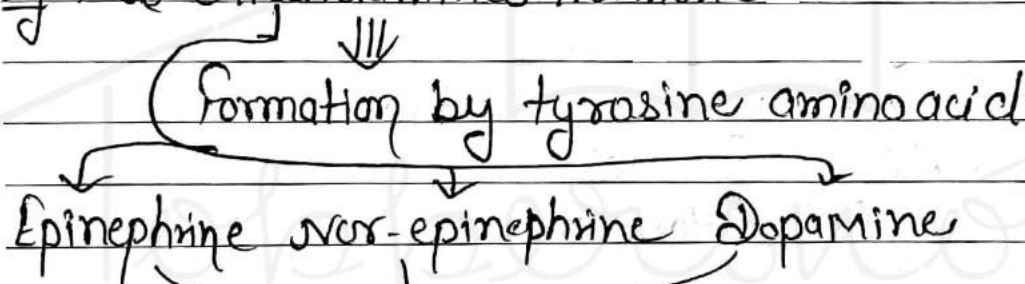 Formation by tyrosine amino acid
Epinephrine Nor-epinephrine Dopamine